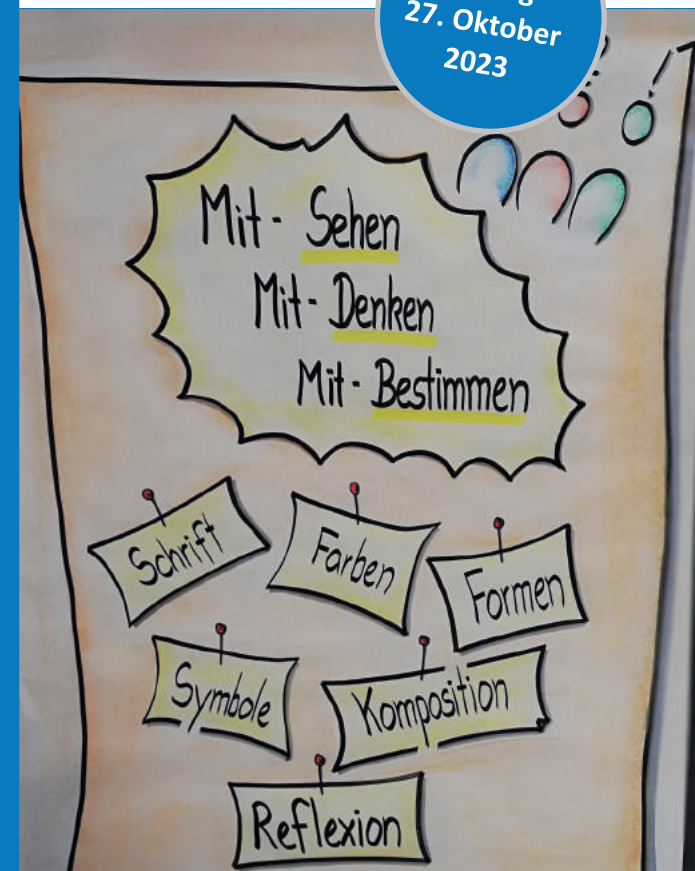 27. Oktober
2023
Mit- Sehen
Mit- Denken
Mit- Bestimmen
Schrift
Farben
Formen
Symbole
Komposition
Reflexion